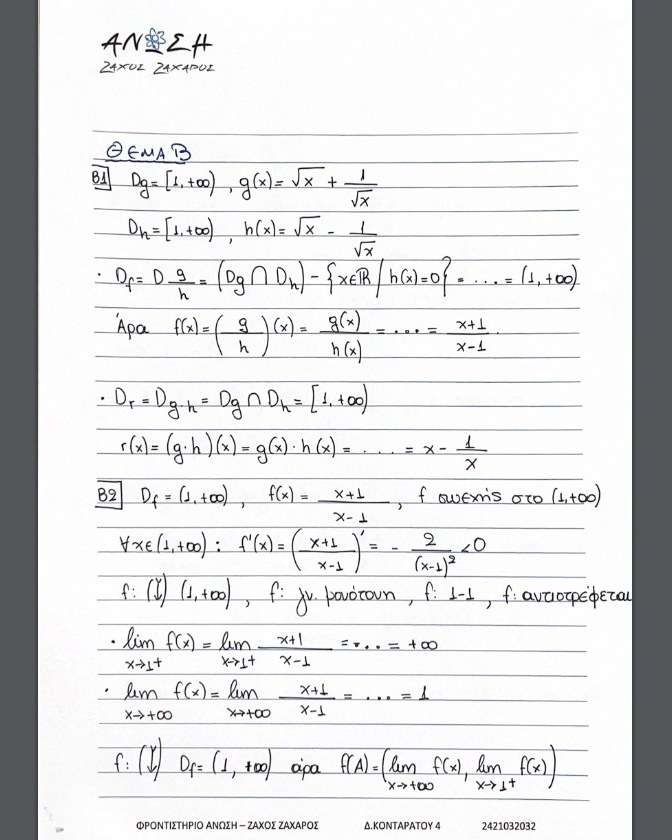 ΑΝΩΣΗ
ΖΑΧΟΣ ΖΑΧΑΡΟΣ
ΘΕΜΑ Β
Β1 Dg = [1,+∞) , g(x) = √x + 1/√x
Dh = [1,+∞) , h(x) = √x - 1/√x
· Df = D g/h = (Dg ∩ Dh) - {x∈ℝ / h(x)=0} = .... = (1,+∞)
Άρα f(x) = (g/h)(x) = g(x)/h(x) = .... = x+1/x-1
· Dr = Dg·h = Dg ∩ Dh = [1,+∞)
r(x) = (g·h)(x) = g(x)·h(x) = .... = x - 1/x
Β2 Df = (1,+∞) , f(x) = x+1/x-1 , f συνεχής στο (1,+∞)
∀x∈(1,+∞) : f'(x) = (x+1/x-1)' = - 2/(x-1)² <0
f: (↓) (1,+∞) , f: γν. μονότονη , f: 1-1 , f: αντιστρέφεται
· lim x→1+ f(x) = lim x→1+ x+1/x-1 = .... = +∞
· lim x→+∞ f(x) = lim x→+∞ x+1/x-1 = ... = 1
f: (↓) Df = (1, +∞) άρα f(A) = (lim x→+∞ f(x), lim x→1+ f(x))
ΦΡΟΝΤΙΣΤΗΡΙΟ ΑΝΩΣΗ – ΖΑΧΟΣ ΖΑΧΑΡΟΣ Δ.ΚΟΝΤΑΡΑΤΟΥ 4 2421032032